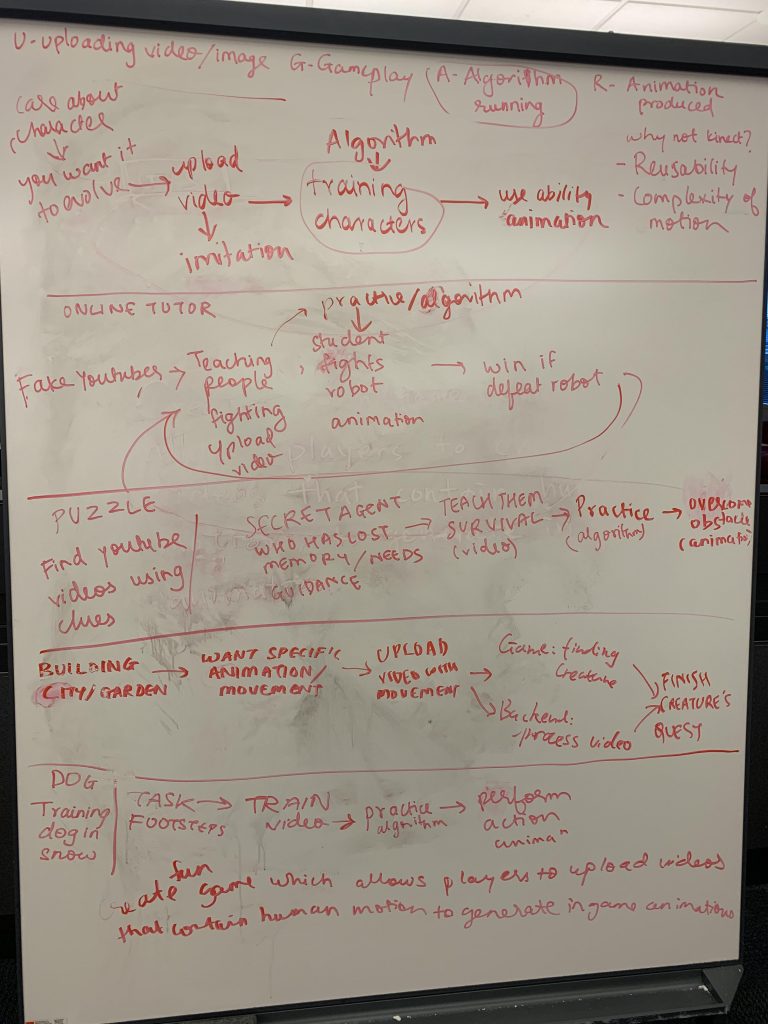 U-uploading video/image G-Gameplay (A-Algorithm running R- Animation produced
care about character
you want it to evolve
upload video
imitation
Algorithm
training characters
use ability animation
why not kinect?
- Reusability
- Complexity of motion
ONLINE TUTOR
practice/algorithm
Fake Youtuber
Teaching people
fighting
upload video
student fights robot
animation
win if defeat robot
PUZZLE
Find youtube
videos using
clues
SECRET AGENT
WHO HAS LOST
MEMORY/NEEDS
GUIDANCE
TEACH THEM
SURVIVAL
(video)
Practice
(algorithm)
overcome
obstacle
BUILDING
CITY/GARDEN
WANT SPECIFIC
ANIMATION/
MOVEMENT
UPLOAD
VIDEO WITH
MOVEMENT
Game: finding
creature
Backend:
-process video
FINISH
CREATURE'S
QUEST
DOG
Training
dog in
snow
TASK
FOOTSTEPS
TRAIN
video
practice
algorithm
perform
action
animaⁿ
fun
Create game which allows players to upload videos
that contain human motion to generate in game animations